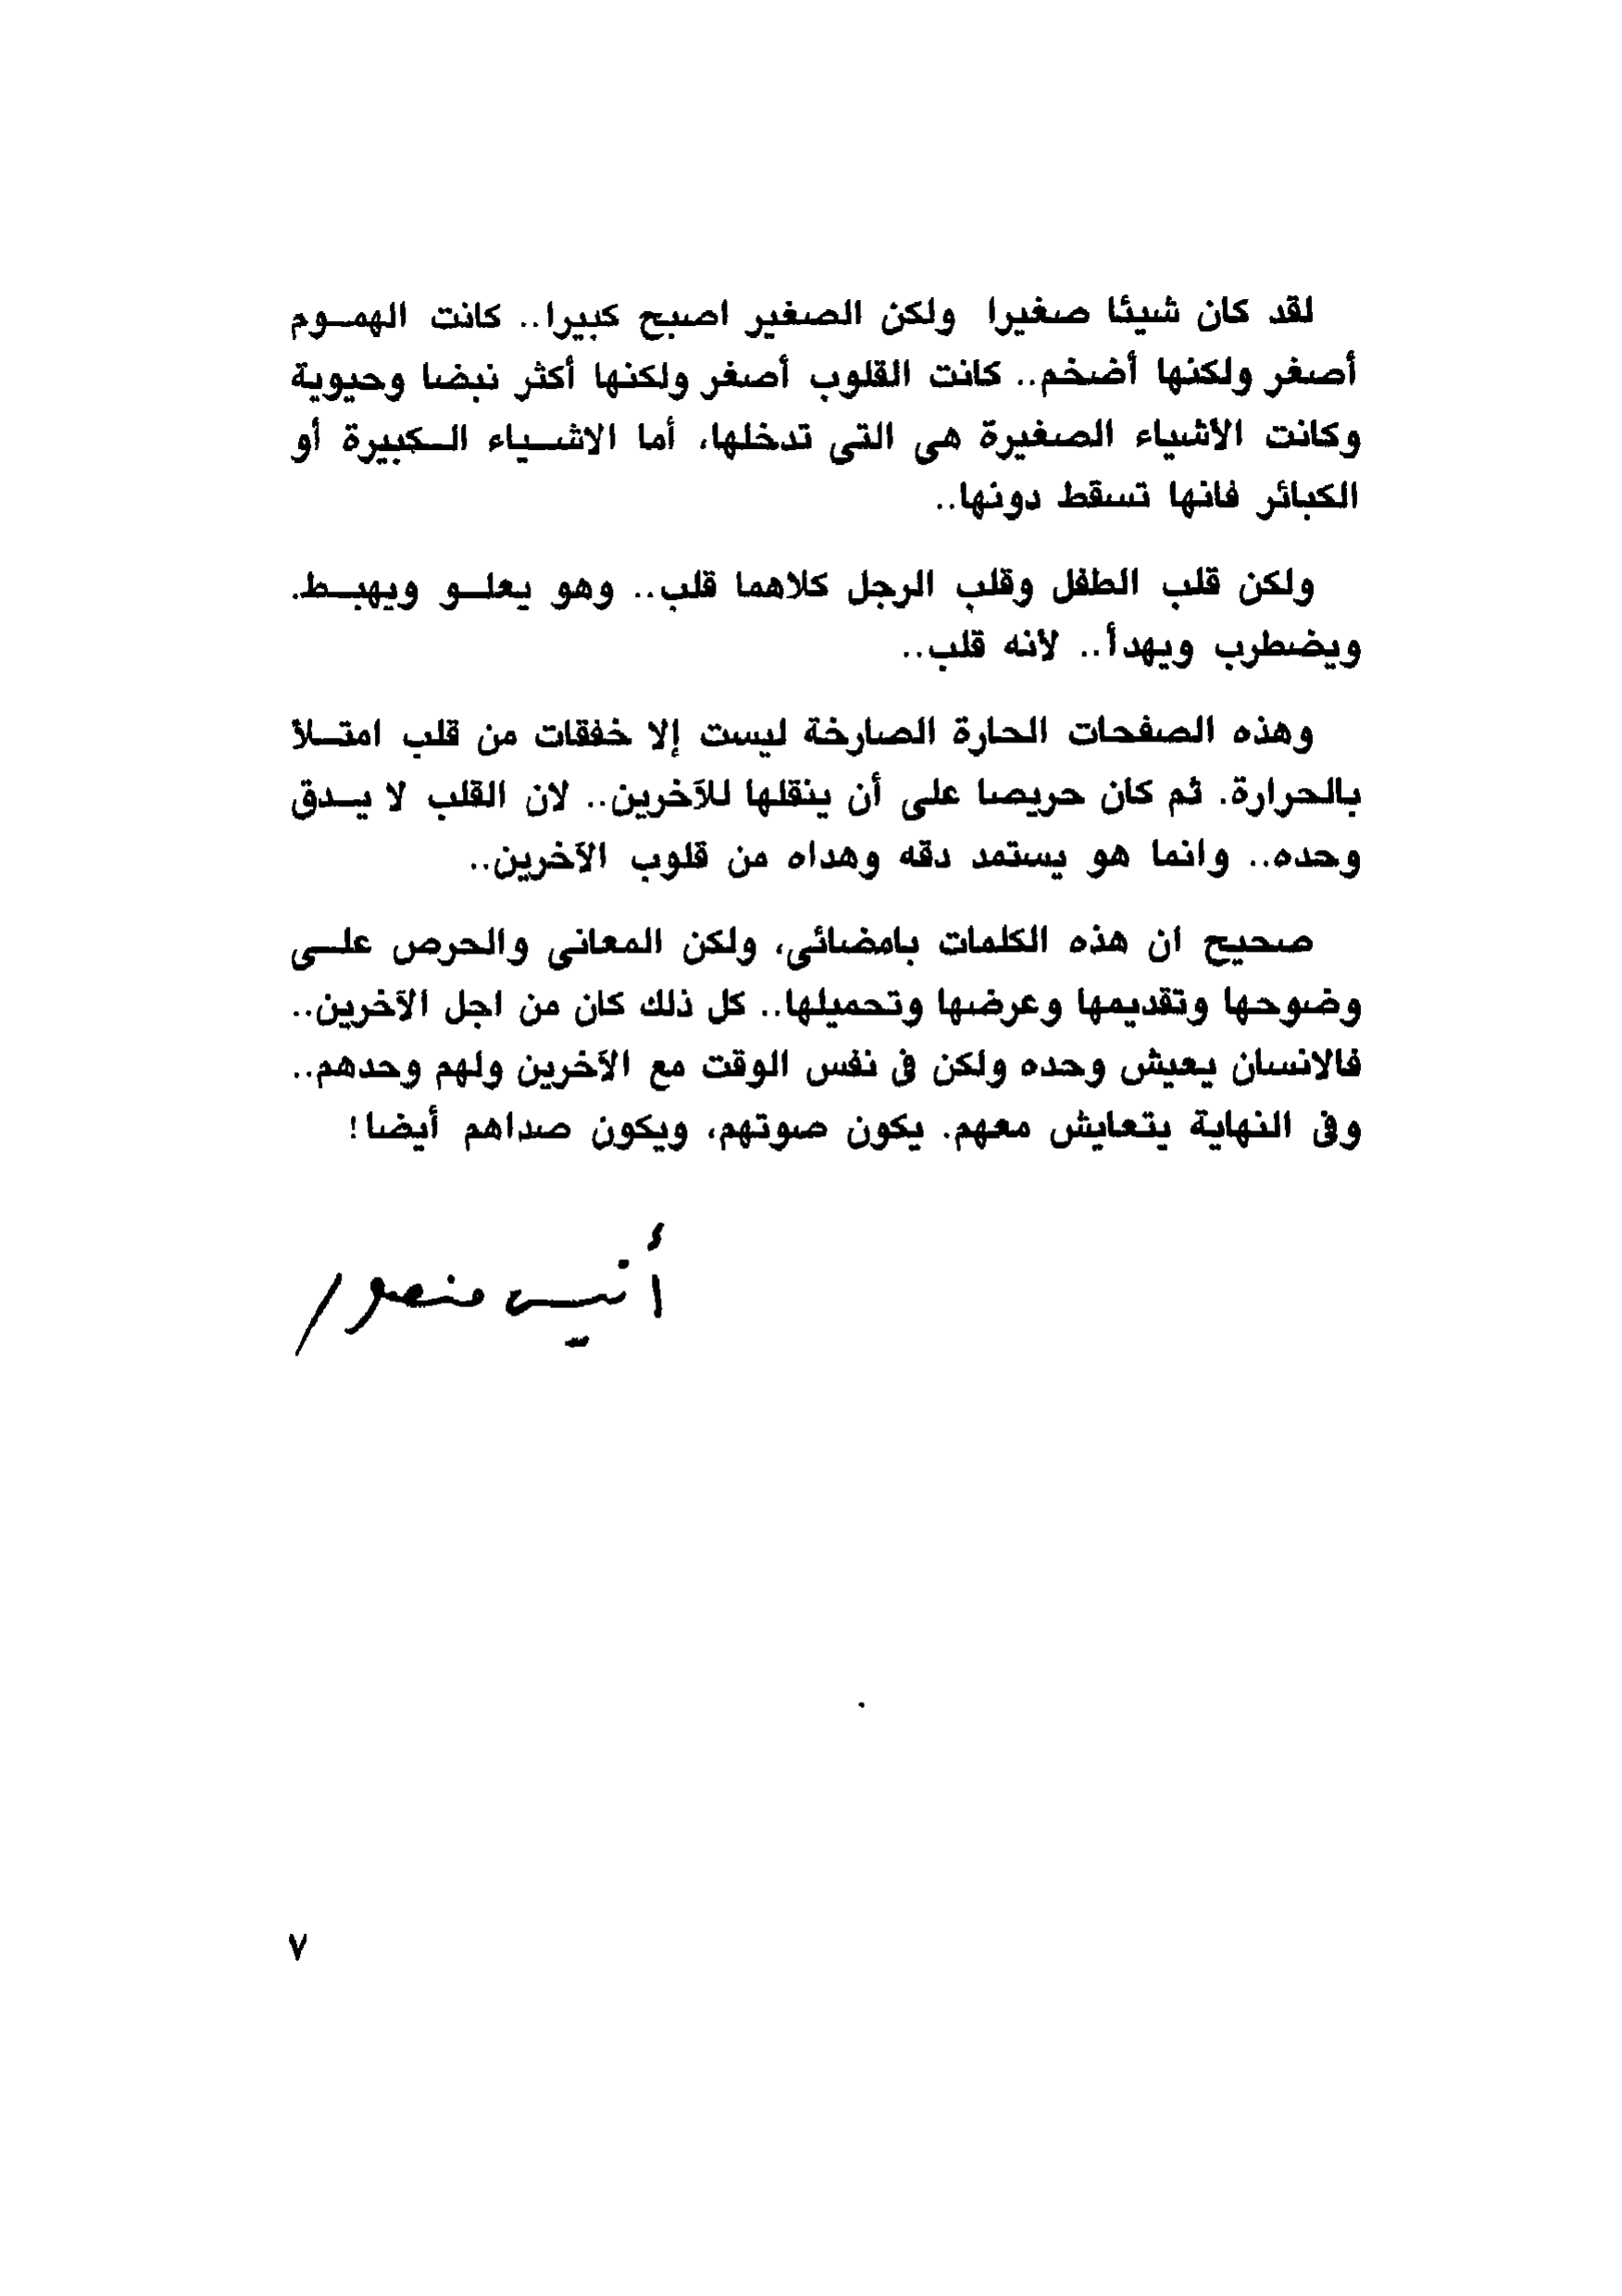 لقد كان شيئا صغيرا ولكن الصغير اصبح كبيرا.. كانت الهمــوم
أصغر ولكنها أضخم.. كانت القلوب أصغر ولكنها أكثر نبضا وحيوية
وكانت الأشياء الصغيرة هى التى تدخلها، أما الاشــياء الــكبيرة أو
الكبائر فانها تسقط دونها..
ولكن قلب الطفل وقلب الرجل كلاهما قلب.. وهو يعلــو ويهبــط.
ويضطرب ويهدأ.. لأنه قلب..
وهذه الصفحات الحارة الصارخة ليست إلا خفقات من قلب امتــلأ
بالحرارة. ثم كان حريصا على أن ينقلها للآخرين.. لان القلب لا يــدق
وحده.. وانما هو يستمد دقه وهداه من قلوب الآخرين..
صحيح ان هذه الكلمات بامضائى، ولكن المعانى والحرص علــى
وضوحها وتقديمها وعرضها وتحميلها.. كل ذلك كان من اجل الآخرين..
فالانسان يعيش وحده ولكن فى نفس الوقت مع الآخرين ولهم وحدهم..
وفى النهاية يتعايش معهم. يكون صوتهم، ويكون صداهم أيضا!
أنيس منصور
٧